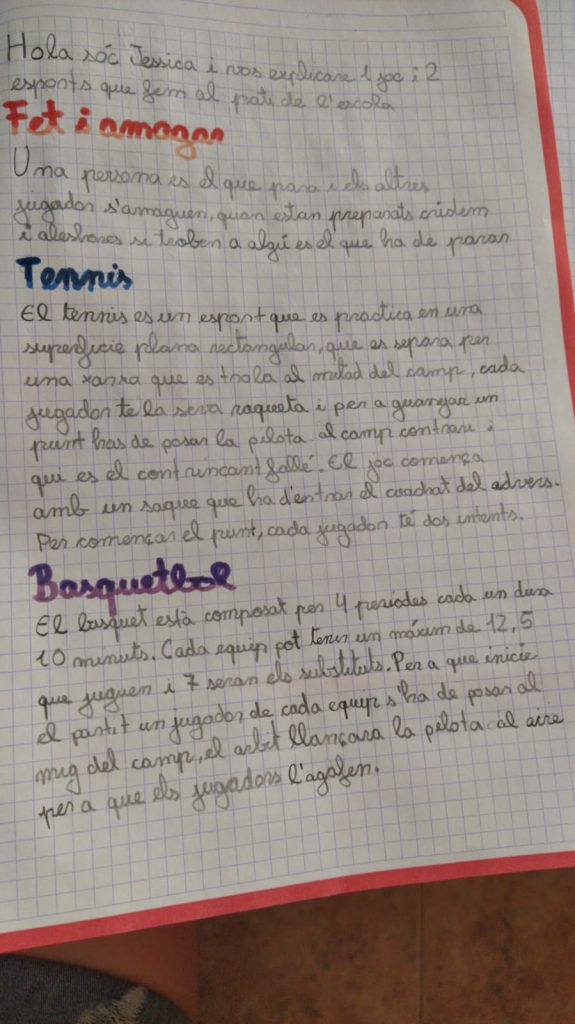 Hola sóc Jessica i vos explicare 1 joc i 2
esports que fem al pati de l'escola
Fet i amagar
Una persona es el que para i els altres
jugador s'amaguen, quan estan preparats cridem
i aleshores si troben a algú es el que ha de parar
Tennis
El tennis es un esport que es practica en una
superficie plana rectangular, que es separa per
una xarxa que es troba al mitad del camp, cada
jugador te la seva raqueta i per a guanyar un
punt has de posar la pilota al camp contrari i
qui es el contrincant fallé. El joc comença
amb un saque que ha d'entrar el cuadrat del advers.
Per començar el punt, cada jugador té dos intents.
Basquetbol
El basquet està composat per 4 períodes cada un dura
10 minuts. Cada equip pot tenir un máxim de 12, 5
que juguen i 7 seran els substituts. Per a que inicie
el partit un jugador de cada equip s'ha de posar al
mig del camp, el arbit llançara la pilota al aire
per a que els jugadors l'agafen.